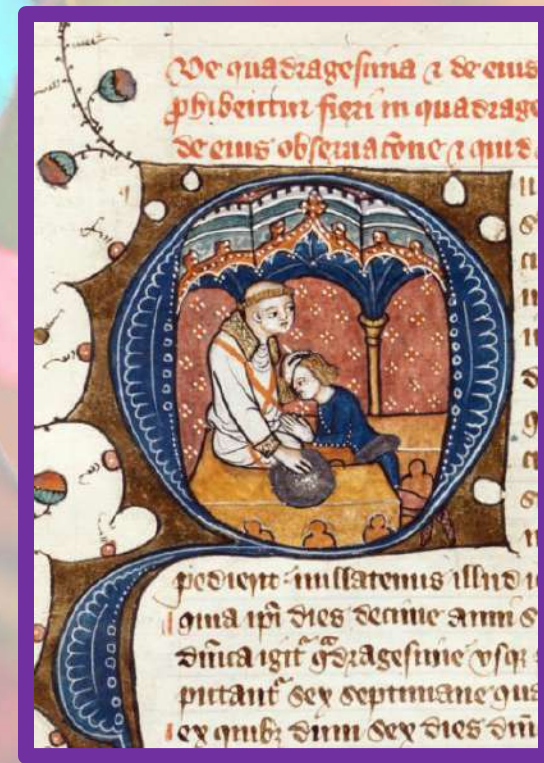 De quadragesima ⁊ de eius
ꝓhibentur fieri in quadrage
de eius obseruac̄one ⁊ quid
pedierit nullatenus illud
quia ip̄i dies decime anni s
dn̄ica igit᷑ q̄dragesime vsqꝫ
putant᷑ sex septimane qua
ex quibꝫ dum sex dies dn̄i